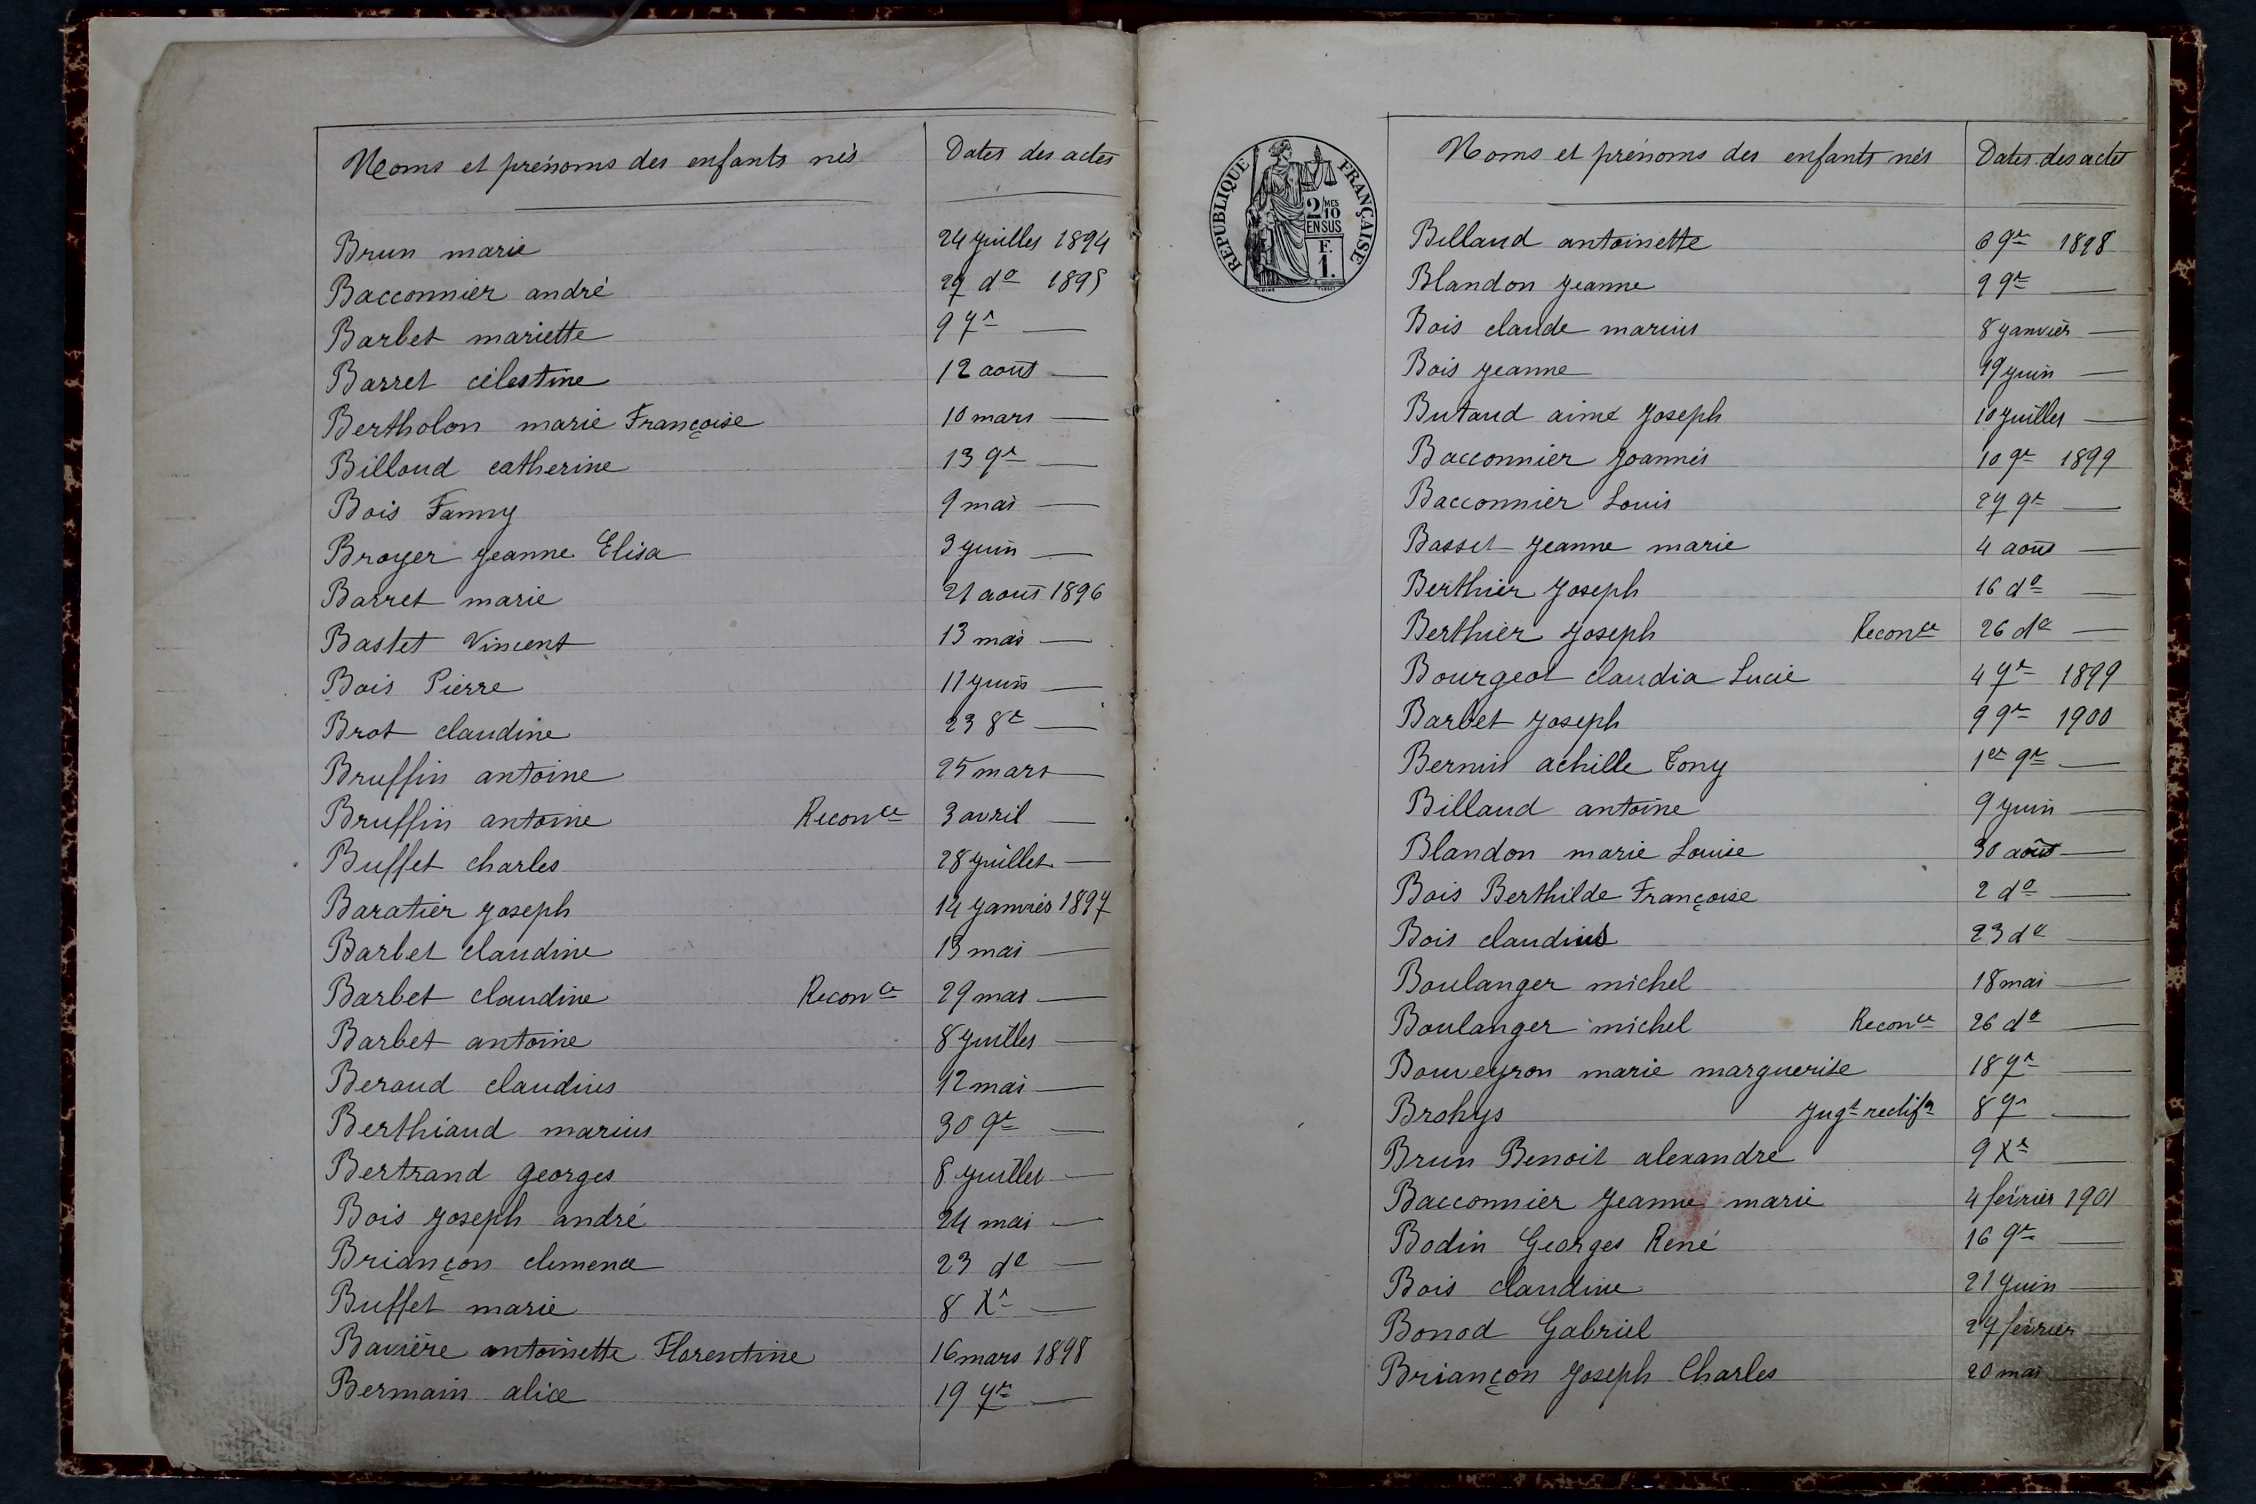 Noms et prénoms des enfants nés Dates des actes
Brun marie 24 juillet 1894
Bacconnier andré 27 do 1895
Barbet mariette 9 7r —
Barret célestine 12 août —
Bertholon marie Françoise 10 mars —
Billoud catherine 13 9r —
Bois Fanny 9 mai —
Broyer jeanne Elisa 3 juin —
Barret marie 21 août 1896
Bastet Vincent 13 mai —
Bois Pierre 11 juin —
Brot claudine 23 8r —
Bruffin antoine 25 mars —
Bruffin antoine Reconce 3 avril —
Buffet charles 28 juillet —
Baratier joseph 14 janvier 1897
Barbet claudine 13 mai —
Barbet claudine Reconce 29 mai —
Barbet antoine 8 juillet —
Beraud claudius 12 mai —
Berthiaud marius 30 9r —
Bertrand georges 8 juillet —
Bois joseph andré 24 mai —
Briançon clemence 23 do —
Buffet marie 8 Xr —
Bavière antoinette Florentine 16 mars 1898
Bermain alice 19 7r —
REPUBLIQUE FRANÇAISE
2/10 MES
EN SUS
F.
1.
Noms et prénoms des enfants nés Dates des actes
Billaud antoinette 6 9r 1898
Blandon jeanne 9 9r —
Bois claude marius 8 janvier —
Bois jeanne 19 juin —
Butaud aimé joseph 10 juillet —
Bacconnier joannès 10 9r 1899
Bacconnier Louis 27 9r —
Basset jeanne marie 4 août —
Berthier joseph 16 do —
Berthier joseph Reconce 26 do —
Bourgeot claudia Lucie 4 7r 1899
Barbet joseph 9 9r 1900
Bernin achille Tony 1er 9r —
Billaud antoine 9 juin —
Blandon marie Louise 30 août —
Bois Berthilde Françoise 2 do —
Bois claudius 23 do —
Boulanger michel 18 mai —
Boulanger michel Reconce 26 do —
Bouveyron marie marguerite 18 7r —
Brohys jugt rectifn 8 7r —
Brun Benoit alexandre 9 Xr —
Bacconnier jeanne marie 4 février 1901
Bodin Georges René 16 9r —
Bois claudine 21 juin —
Bonod Gabriel 27 février —
Briançon joseph Charles 20 mai —